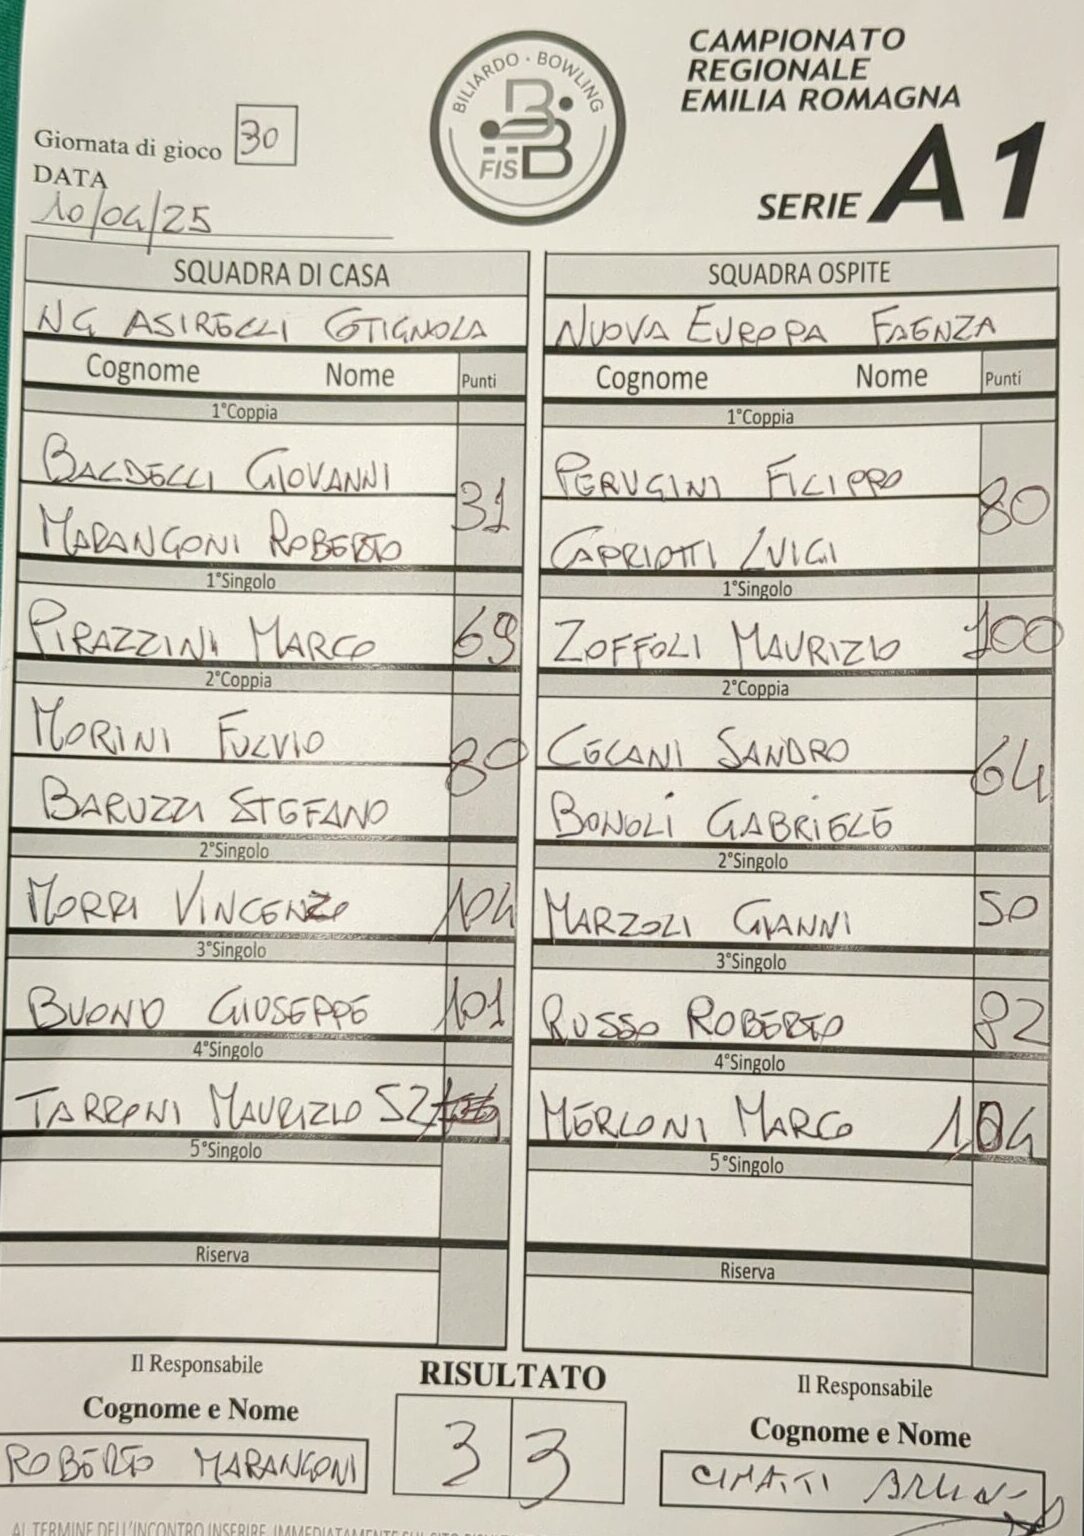 BILIARDO · BOWLING
FISBB
CAMPIONATO
REGIONALE
EMILIA ROMAGNA
SERIE A1
Giornata di gioco 30
DATA
10/04/25
SQUADRA DI CASA
NG ASIRELLI COTIGNOLA
Cognome Nome Punti
1°Coppia
BALDELLI GIOVANNI
31
MARANGONI ROBERTO
1°Singolo
PIRAZZINI MARCO 69
2°Coppia
MORINI FULVIO
80
BARUZZI STEFANO
2°Singolo
MORRI VINCENZO 104
3°Singolo
BUONO GIUSEPPE 101
4°Singolo
TARRONI MAURIZIO 52
5°Singolo
Riserva
SQUADRA OSPITE
NUOVA EUROPA FAENZA
Cognome Nome Punti
1°Coppia
PERUGINI FILIPPO
80
CAPRIOTTI LUIGI
1°Singolo
ZOFFOLI MAURIZIO 100
2°Coppia
CELANI SANDRO
64
BONOLI GABRIELE
2°Singolo
MARZOLI GIANNI 50
3°Singolo
RUSSO ROBERTO 82
4°Singolo
MERLONI MARCO 104
5°Singolo
Riserva
Il Responsabile
Cognome e Nome
ROBERTO MARANGONI
RISULTATO
3 3
Il Responsabile
Cognome e Nome
CIMATTI BRUNO
AL TERMINE DELL'INCONTRO INSERIRE IMMEDIATAMENTE SUL SITO